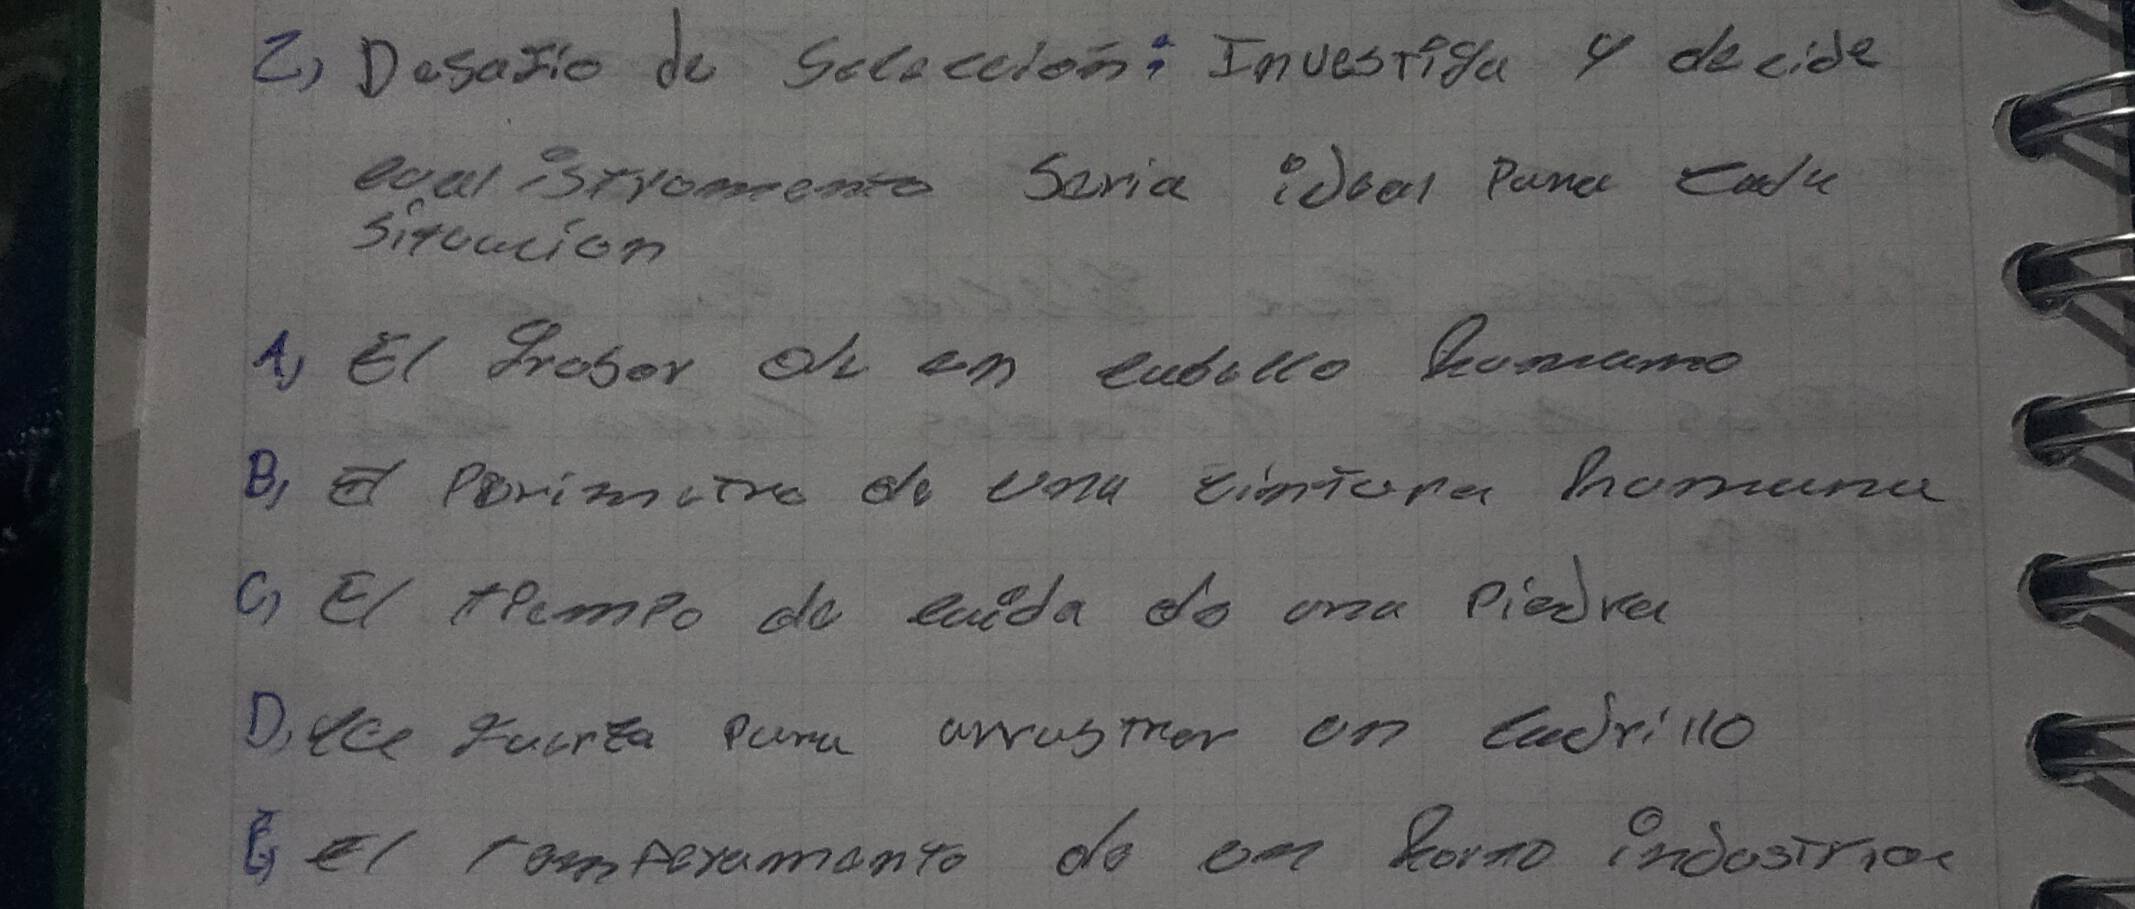 2) Desafio de Selección: Investiga y decide
cual istromento Seria ideal Para cada
situacion
A) El Grosor de un cabello humano
B) el Perimetro de una cintura humana
C) El tiempo de caida de una Piedra
D) La fuerza para arrastrar un ladrillo
E) el temperamento de un horno industrial